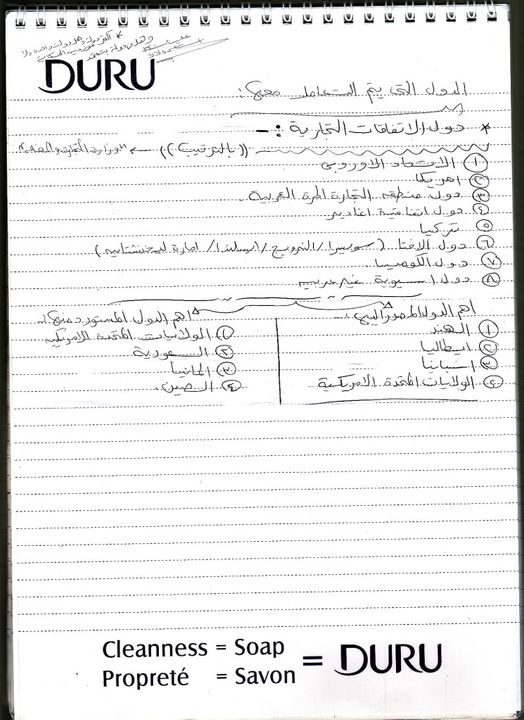 DURU
الدول التي يتم التعامل معها:
* دول الاتفاقات التجارية :-
((بالترتيب)) ← "وزارة التجارة والصناعة"
① الاتحاد الاوروبى
② امريكا
③ دول منطقة التجارة الحرة العربية
④ دول اتفاقية اغادير
⑤ تركيا
⑥ دول الافتا (سويسرا/النرويج/ايسلندا/امارة ليختنشتاين)
⑦ دول الكوميسا
⑧ دول اسيوية غير عربيه
اهم الدول المصدر اليها:-
① الهند
② ايطاليا
③ اسبانيا
④ الولايات المتحدة الامريكية
اهم الدول المستورد منها:-
① الولايات المتحدة الامريكيه
② السعودية
③ المانيا
④ الصين.
Cleanness = Soap
Propreté = Savon
= DURU